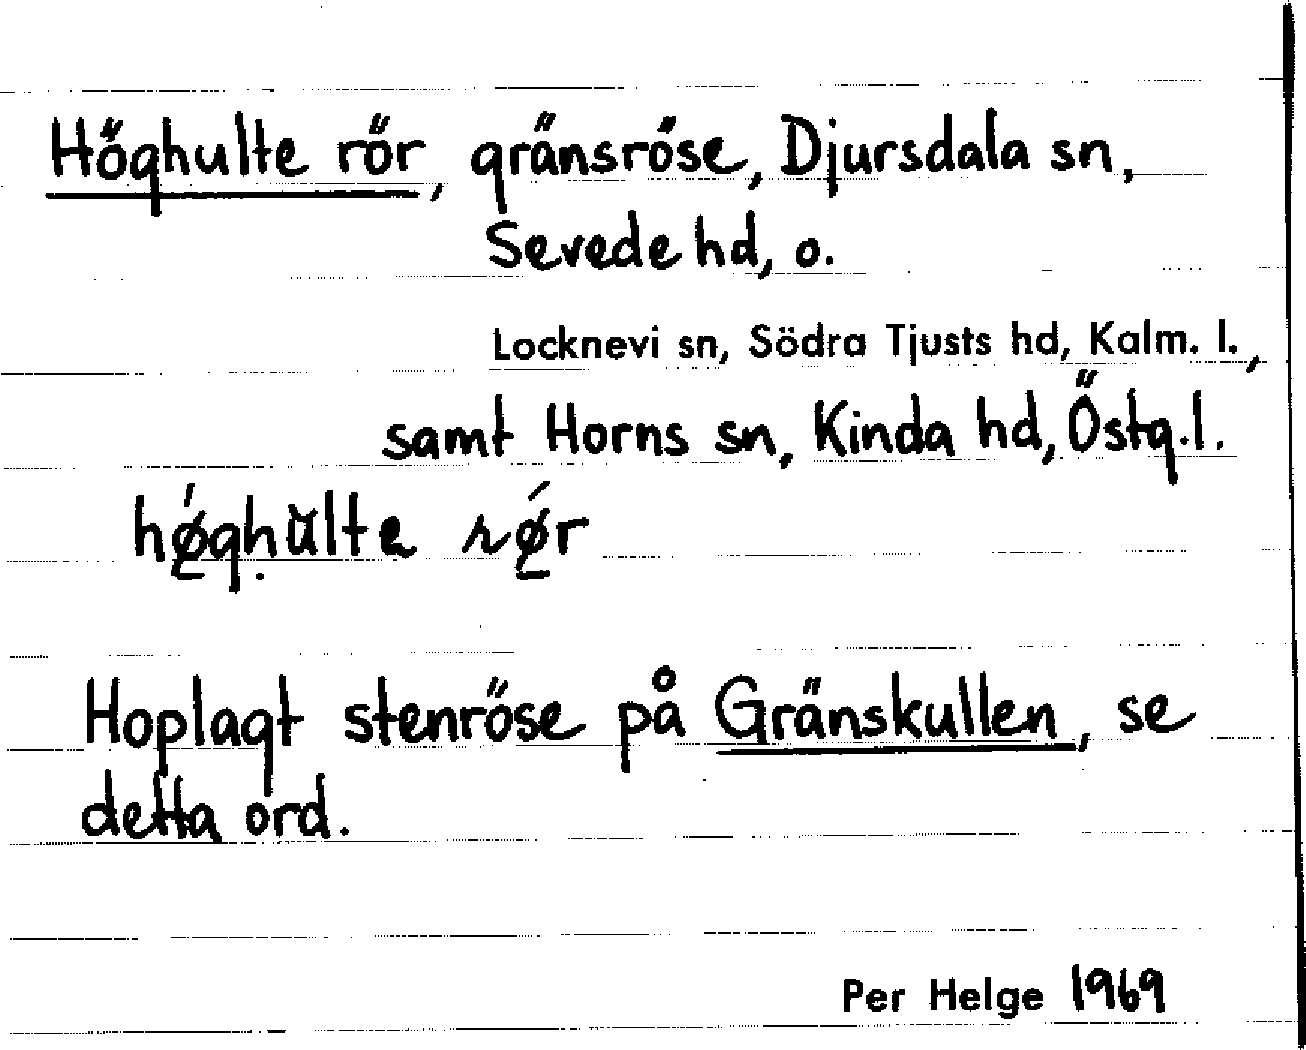 Höghulte rör, gränsröse, Djursdala sn,
Sevede hd, o.
Locknevi sn, Södra Tjusts hd, Kalm. l.,
samt Horns sn, Kinda hd, Östg.l.
hǿ̲gḥŭlte rǿ̲r
Hoplagt stenröse på Gränskullen, se
detta ord.
Per Helge 1969